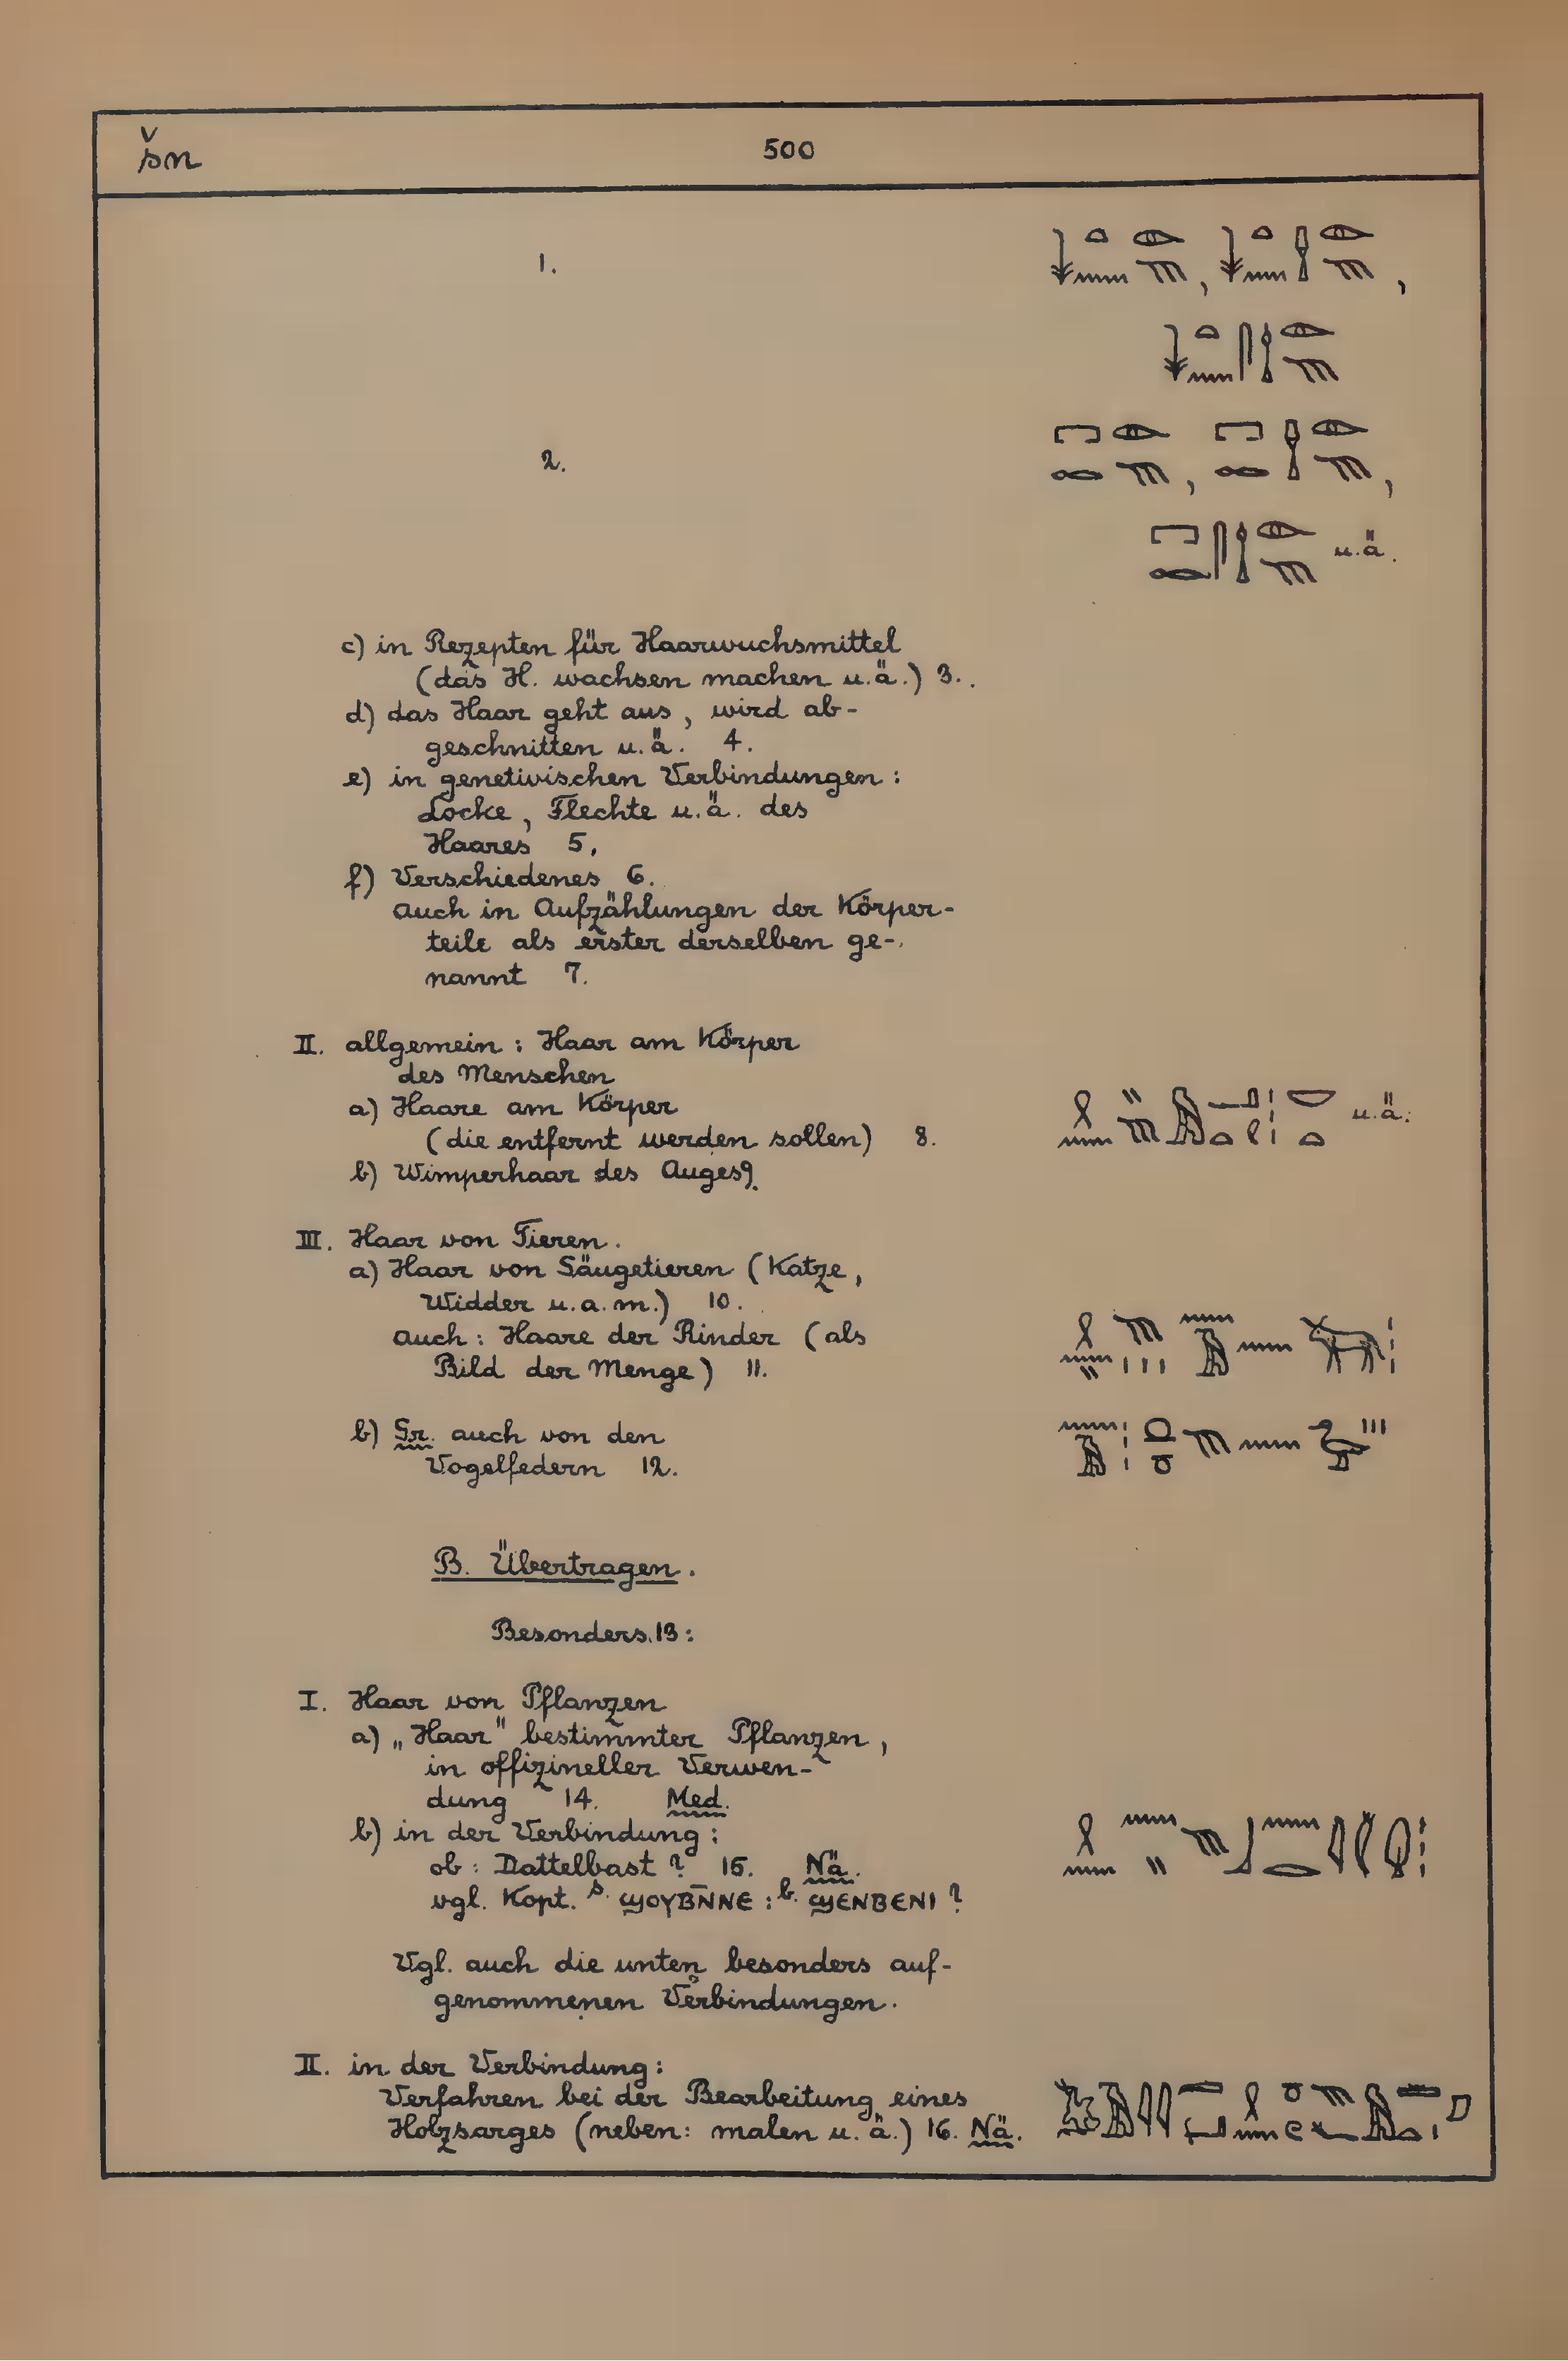 šn 500
1.
2.
u.ä.
c) in Rezepten für Haarwuchsmittel
(das H. wachsen machen u.ä.) 3.
d) das Haar geht aus, wird ab-
geschnitten u.ä. 4.
e) in genetivischen Verbindungen:
Locke, Flechte u.ä. des
Haares 5.
f) Verschiedenes 6.
auch in Aufzählungen der Körper-
teile als erster derselben ge-
nannt 7.
II. allgemein: Haar am Körper
des Menschen
a) Haare am Körper u.ä.
(die entfernt werden sollen) 8.
b) Wimperhaar des Auges 9.
III. Haar von Tieren.
a) Haar von Säugetieren (Katze,
Widder u.a.m.) 10.
auch: Haare der Rinder (als
Bild der Menge) 11.
b) Gr. auch von den
Vogelfedern 12.
B. Übertragen.
Besonders 13:
I. Haar von Pflanzen
a) „Haar" bestimmter Pflanzen,
in offizineller Verwen-
dung 14. Med.
b) in der Verbindung:
ob: Dattelbast? 15. Nä.
vgl. Kopt. s. ϣⲟⲩⲃⲛ̄ⲛⲉ : b. ϣⲉⲛⲃⲉⲛⲓ ?
Vgl. auch die unten besonders auf-
genommenen Verbindungen.
II. in der Verbindung:
Verfahren bei der Bearbeitung eines
Holzsarges (neben: malen u.ä.) 16. Nä.